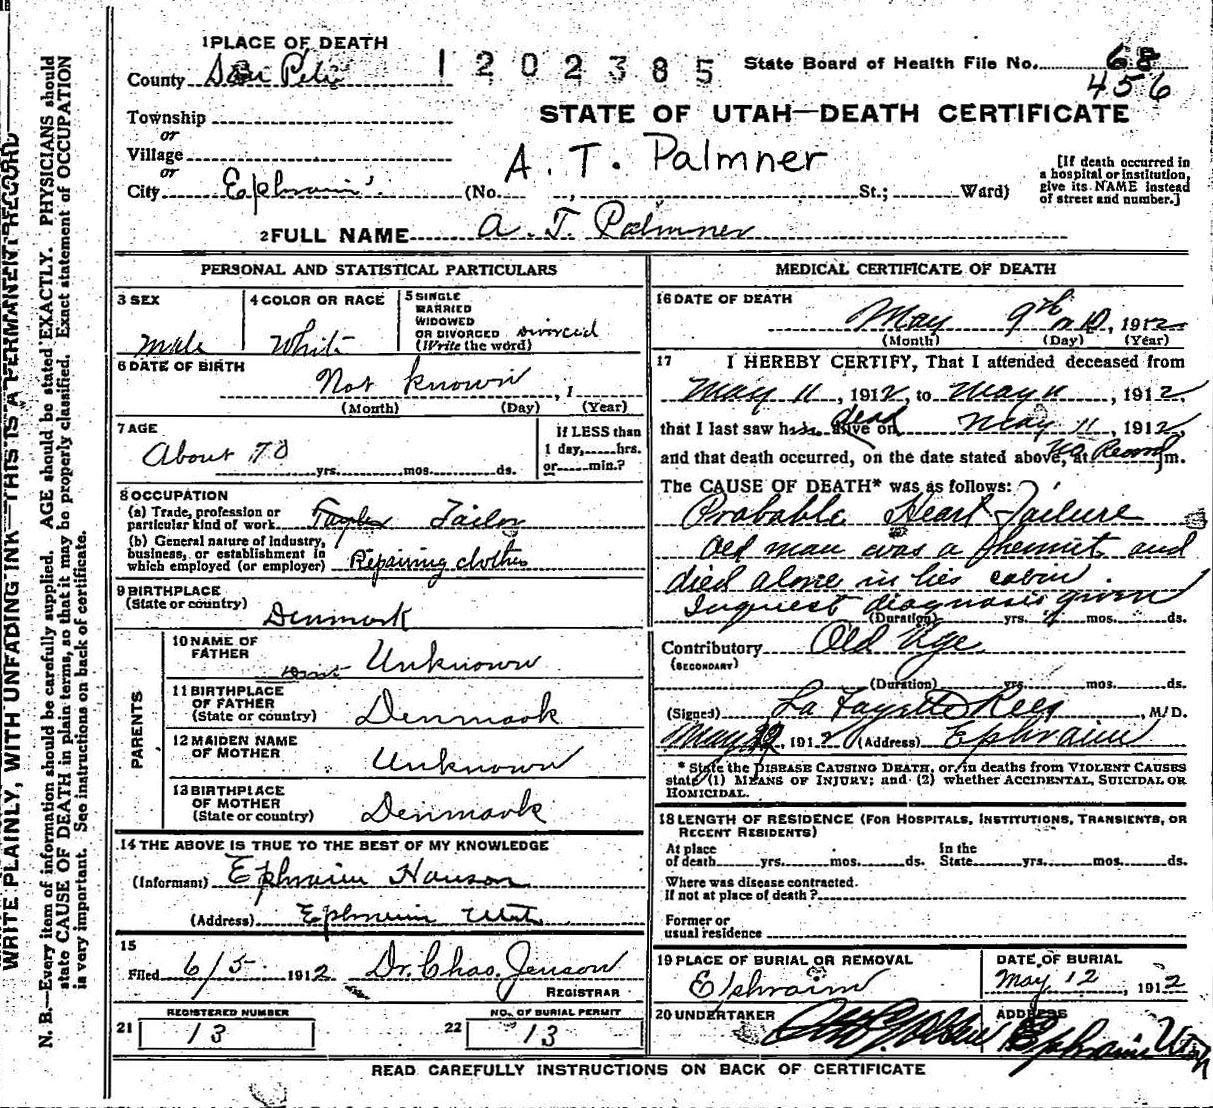 1 PLACE OF DEATH
County San Pete
1202385
State Board of Health File No. 68
456
STATE OF UTAH—DEATH CERTIFICATE
Township
or
Village
or
City Ephraim
(No. , St.; Ward)
A. T. Palmner
[If death occurred in
a hospital or institution,
give its NAME instead
of street and number.]
2 FULL NAME A. T. Palmner
PERSONAL AND STATISTICAL PARTICULARS
3 SEX
male
4 COLOR OR RACE
White
5 SINGLE
MARRIED
WIDOWED
OR DIVORCED divorced
(Write the word)
6 DATE OF BIRTH
Not known , 1
(Month) (Day) (Year)
7 AGE
About 70 yrs. mos. ds.
If LESS than
1 day, hrs.
or min.?
8 OCCUPATION
(a) Trade, profession or
particular kind of work Taylor Tailor
(b) General nature of industry,
business, or establishment in
which employed (or employer) Repairing clothes
9 BIRTHPLACE
(State or country)
Denmark
PARENTS
10 NAME OF
FATHER
Unknown
11 BIRTHPLACE
OF FATHER
(State or country) Denmark
12 MAIDEN NAME
OF MOTHER
Unknown
13 BIRTHPLACE
OF MOTHER
(State or country) Denmark
14 THE ABOVE IS TRUE TO THE BEST OF MY KNOWLEDGE
(Informant) Ephraim Hanson
(Address) Ephraim Utah
15
Filed 6/5 1912 Dr. Chas. Jenson
REGISTRAR
REGISTERED NUMBER
21 13
NO. OF BURIAL PERMIT
22 13
MEDICAL CERTIFICATE OF DEATH
16 DATE OF DEATH
May 9th or 10, 1912
(Month) (Day) (Year)
17 I HEREBY CERTIFY, That I attended deceased from
May 11, 1912, to May 11, 1912,
that I last saw him alive on dead May 11, 1912,
and that death occurred, on the date stated above, at No Record m.
The CAUSE OF DEATH* was as follows:
Probable Heart Failure
Old man was a hermit and
died alone in his cabin.
Inquest diagnosis given
(Duration) yrs. mos. ds.
Contributory Old Age
(SECONDARY)
(Duration) yrs. mos. ds.
(Signed) La Fayette Rees, M. D.
May 12, 1912 (Address) Ephraim
* State the DISEASE CAUSING DEATH, or, in deaths from VIOLENT CAUSES
state (1) MEANS OF INJURY; and (2) whether ACCIDENTAL, SUICIDAL OR
HOMICIDAL.
18 LENGTH OF RESIDENCE (FOR HOSPITALS, INSTITUTIONS, TRANSIENTS, OR
RECENT RESIDENTS)
At place
of death yrs. mos. ds.
In the
State yrs. mos. ds.
Where was disease contracted.
If not at place of death?
Former or
usual residence
19 PLACE OF BURIAL OR REMOVAL
Ephraim
DATE OF BURIAL
May 12, 1912
20 UNDERTAKER
ADDRESS
Ephraim Utah
READ CAREFULLY INSTRUCTIONS ON BACK OF CERTIFICATE
WRITE PLAINLY, WITH UNFADING INK—THIS IS A PERMANENT RECORD
N. B.—Every item of information should be carefully supplied. AGE should be stated EXACTLY. PHYSICIANS should
state CAUSE OF DEATH in plain terms, so that it may be properly classified. Exact statement of OCCUPATION
is very important. See instructions on back of certificate.